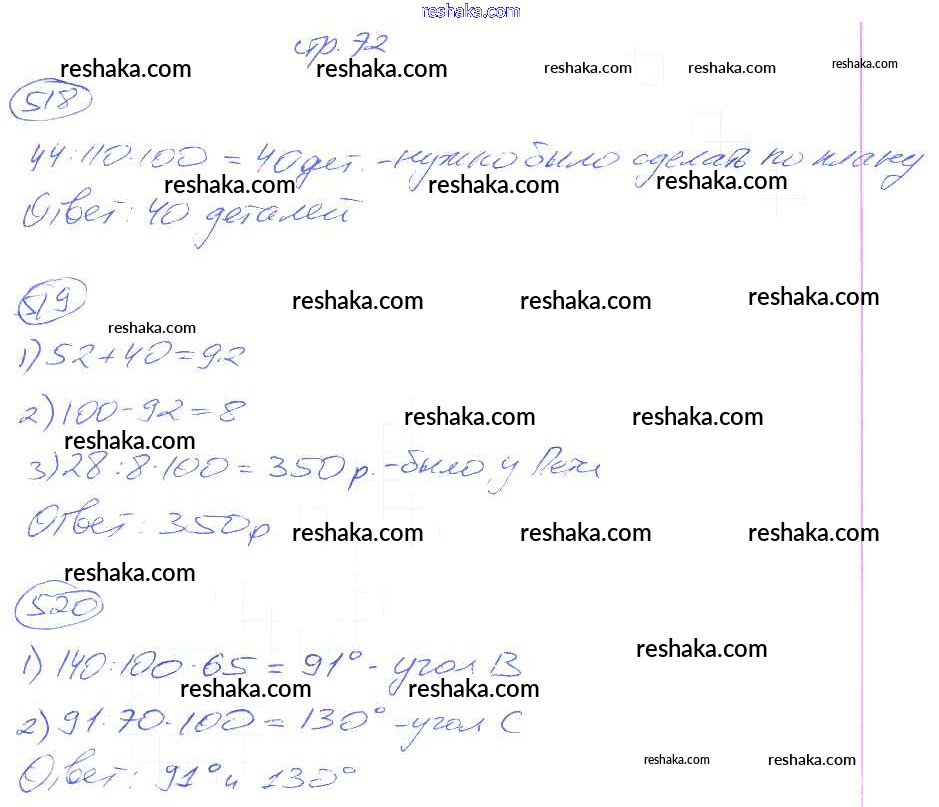 reshaka.com
стр. 72
reshaka.com reshaka.com reshaka.com reshaka.com reshaka.com
518
44:110·100 = 40 дет. - нужно было сделать по плану
reshaka.com reshaka.com reshaka.com
Ответ: 40 деталей
519
reshaka.com reshaka.com reshaka.com
reshaka.com
1) 52+40=92
2) 100-92=8
reshaka.com reshaka.com
reshaka.com
3) 28:8·100=350 р. - было у Пети
Ответ: 350 р
reshaka.com reshaka.com reshaka.com
reshaka.com
520
reshaka.com
1) 140:100·65=91° - угол В
reshaka.com reshaka.com
2) 91:70·100=130° - угол С
Ответ: 91° и 130°
reshaka.com reshaka.com